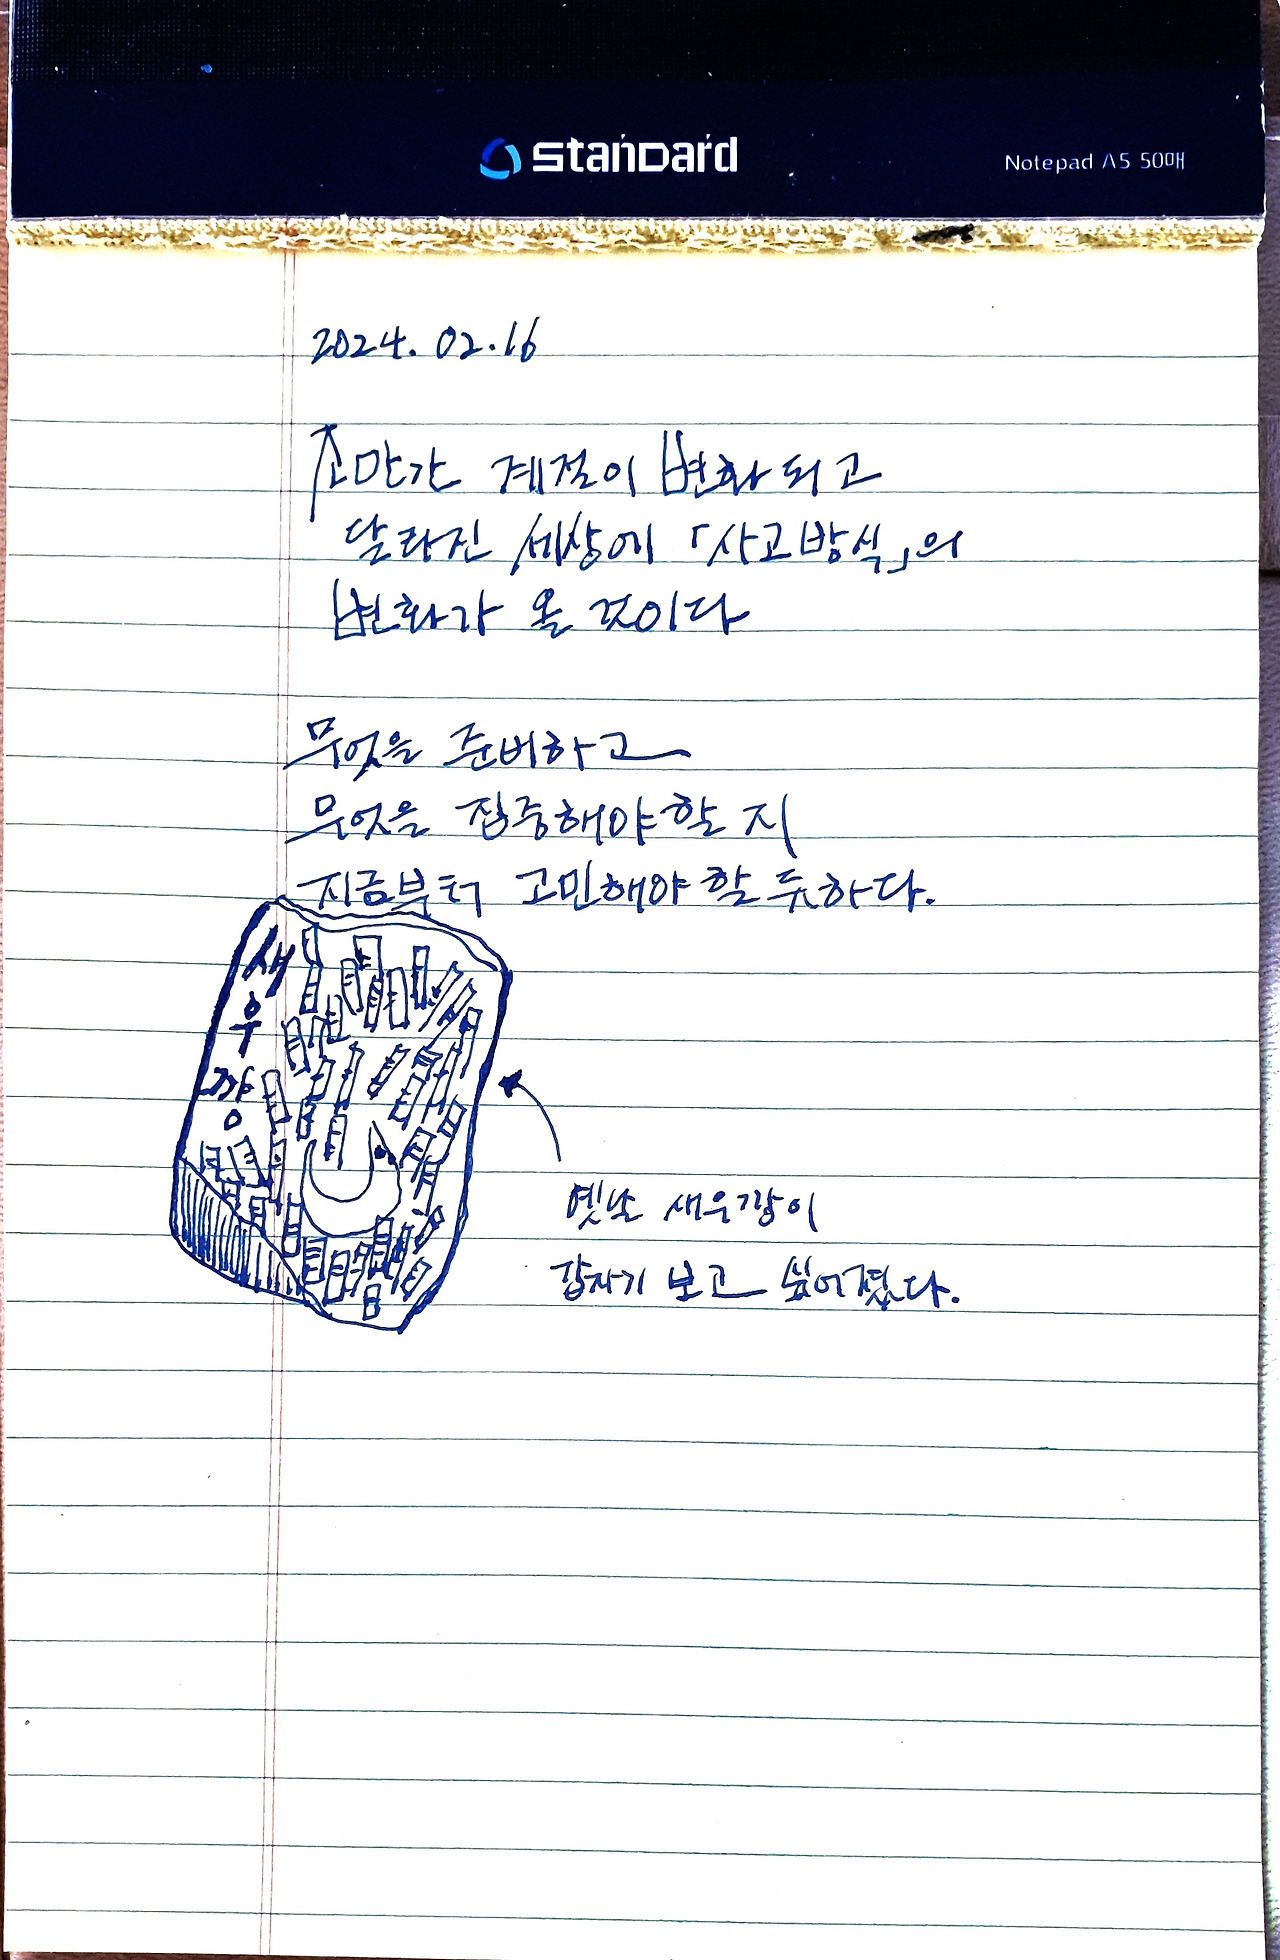 standard
Notepad A5 50매
2024. 02. 16
조만간 계절이 변화되고
달라진 세상에 「사고방식」의
변화가 올 것이다
무엇을 준비하고
무엇을 집중해야 할 지
지금부터 고민해야 할 듯하다.
새
우
깡
옛날 새우깡이
갑자기 보고 싶어졌다.